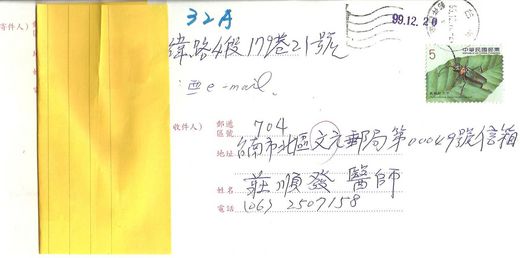 32A
寄件人)
緯路4段179巷21號
e-mail.
99.12.20
5
中華民國郵票
收件人)
郵遞
區號
704
地址
台南市北區文元郵局第00049號信箱
姓名
莊順發醫師
電話
(06) 2507158